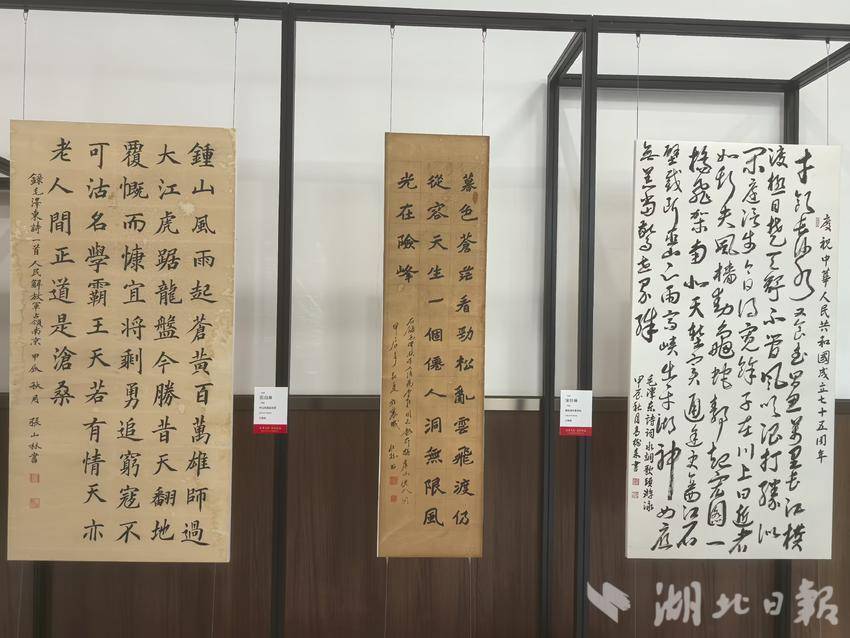 鍾山風雨起蒼黄百萬雄師過
大江虎踞龍盤今勝昔天翻地
覆慨而慷宜將剩勇追窮寇不
可沽名學霸王天若有情天亦
老人間正道是滄桑
錄毛澤東詩一首人民解放軍占領南京 甲辰秋月 張山林書
暮色蒼茫看勁松亂雲飛渡仍
從容天生一個僊人洞無限風
光在險峰
慶祝中華人民共和國成立七十五周年
才飲長沙水又食武昌魚萬里長江橫
渡極目楚天舒不管風吹浪打勝似
閑庭信步今日得寬餘子在川上曰逝者
如斯夫風檣動龜蛇靜起宏圖一
橋飛架南北天塹變通途更立西江石
壁截斷巫山雲雨高峽出平湖神女應
無恙當驚世界殊
毛澤東詩詞水調歌頭游泳
甲辰秋月
湖北日報